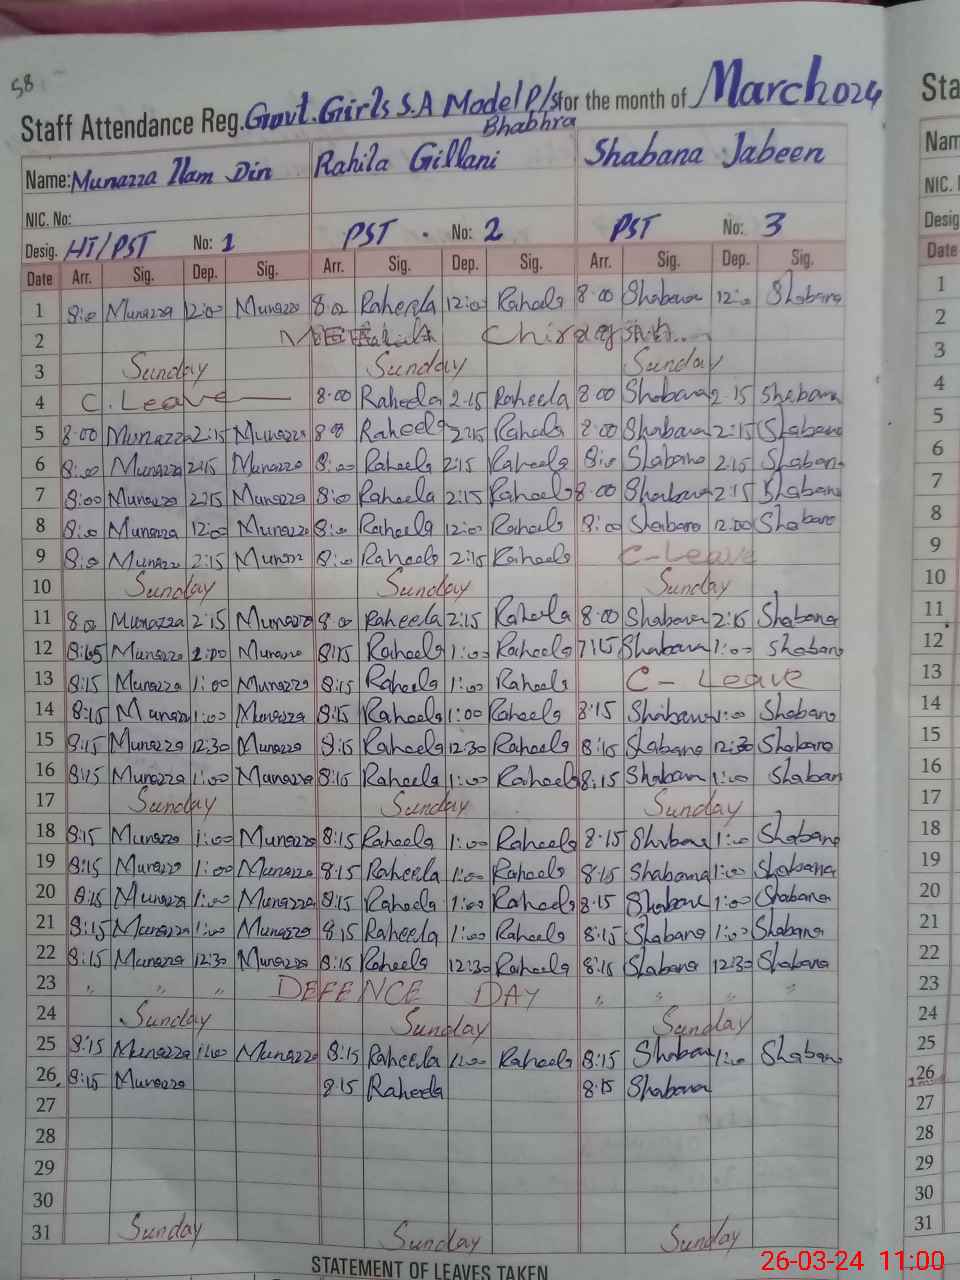 58
Staff Attendance Reg. Govt. Girls S.A Model P/S for the month of March 024
Bhabhra
Name: Munazza Ilam Din Rahila Gillani Shabana Jabeen
NIC. No:
Desig. HT/PST No: 1 PST. No: 2 PST No: 3
Date Arr. Sig. Dep. Sig. Arr. Sig. Dep. Sig. Arr. Sig. Dep. Sig.
1 8:00 Munazza 12:00 Munazza 8:00 Raheela 12:00 Raheela 8:00 Shabana 12:00 Shabana
2 Chiragha
3 Sunday Sunday Sunday
4 C. Leave 8:00 Raheela 2:15 Raheela 8:00 Shabana 2:15 Shabana
5 8:00 Munazza 2:15 Munazza 8:00 Raheela 2:15 Raheela 8:00 Shabana 2:15 Shabana
6 8:00 Munazza 2:15 Munazza 8:00 Raheela 2:15 Raheela 8:00 Shabana 2:15 Shabana
7 8:00 Munazza 2:15 Munazza 8:00 Raheela 2:15 Raheela 8:00 Shabana 2:15 Shabana
8 8:00 Munazza 12:00 Munazza 8:00 Raheela 12:00 Raheela 8:00 Shabana 12:00 Shabana
9 8:00 Munazza 2:15 Munazza 8:00 Raheela 2:15 Raheela C-Leave
10 Sunday Sunday Sunday
11 8:00 Munazza 2:15 Munazza 8:00 Raheela 2:15 Raheela 8:00 Shabana 2:15 Shabana
12 Munazza 1:00 Munazza 8:15 Raheela 1:00 Raheela Shabana 1:00 Shabana
13 8:15 Munazza 1:00 Munazza 8:15 Raheela 1:00 Raheela C-Leave
14 8:15 Munazza 1:00 Munazza 8:15 Raheela 1:00 Raheela 8:15 Shabana 1:00 Shabana
15 8:15 Munazza 12:30 Munazza 8:15 Raheela 12:30 Raheela 8:15 Shabana 12:30 Shabana
16 8:15 Munazza 1:00 Munazza 8:15 Raheela 1:00 Raheela 8:15 Shabana 1:00 Shaban
17 Sunday Sunday Sunday
18 8:15 Munazza 1:00 Munazza 8:15 Raheela 1:00 Raheela 8:15 Shabana 1:00 Shabana
19 8:15 Munazza 1:00 Munazza 8:15 Raheela 1:00 Raheela 8:15 Shabana 1:00 Shabana
20 8:15 Munazza 1:00 Munazza 8:15 Raheela 1:00 Raheela 8:15 Shabana 1:00 Shabana
21 8:15 Munazza 1:00 Munazza 8:15 Raheela 1:00 Raheela 8:15 Shabana 1:00 Shabana
22 8:15 Munazza 12:30 Munazza 8:15 Raheela 12:30 Raheela 8:15 Shabana 12:30 Shabana
23 " " " DEFENCE DAY " " " "
24 Sunday Sunday Sunday
25 8:15 Munazza 1:00 Munazza 8:15 Raheela 1:00 Raheela 8:15 Shabana 1:00 Shabana
26 8:15 Munazza 8:15 Raheela 8:15 Shabana
27
28
29
30
31 Sunday Sunday Sunday
STATEMENT OF LEAVES TAKEN
Sta
Nam
NIC.
Desig
Date
1
2
3
4
5
6
7
8
9
10
11
12
13
14
15
16
17
18
19
20
21
22
23
24
25
26
27
28
29
30
31
26-03-24 11:00